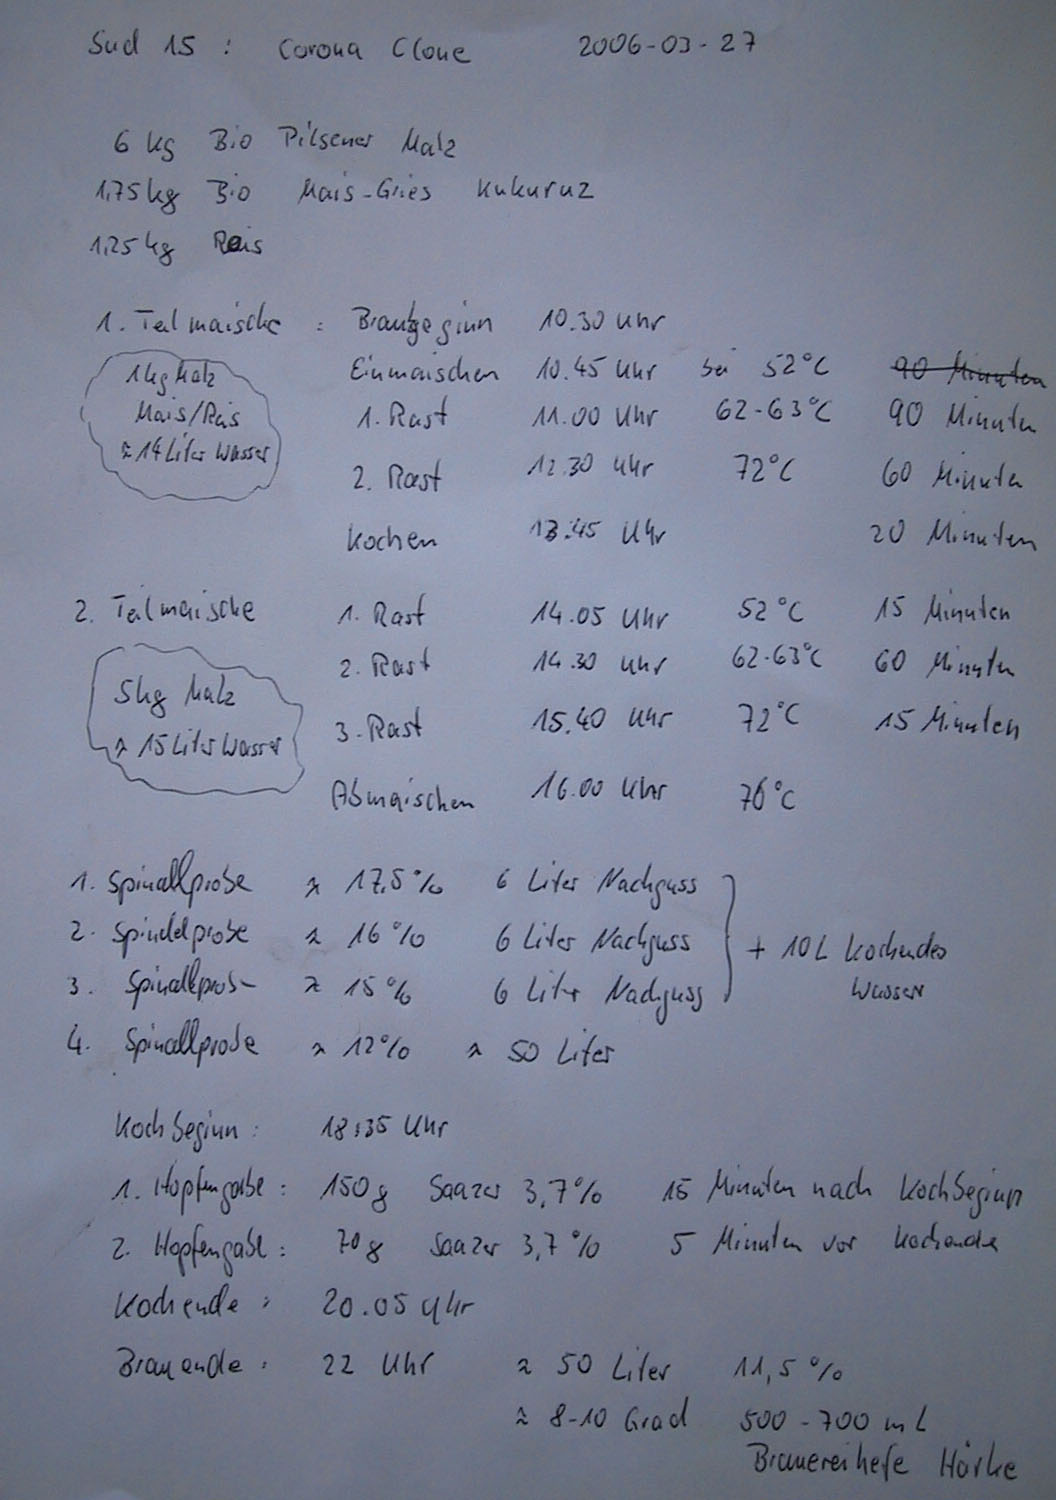 Sud 15 : Corona Clone 2006-03-27
6 kg Bio Pilsener Malz
1,75 kg Bio Mais-Gries Kukuruz
1,25 kg Reis
1. Teilmaische : Braubeginn 10.30 Uhr
Einmaischen 10.45 Uhr bei 52°C 90 Minuten
1 kg Malz
Mais/Reis
≈ 14 Liter Wasser
1. Rast 11.00 Uhr 62-63°C 90 Minuten
2. Rast 12.30 Uhr 72°C 60 Minuten
Kochen 13.45 Uhr 20 Minuten
2. Teilmaische 1. Rast 14.05 Uhr 52°C 15 Minuten
5 kg Malz
≈ 15 Liter Wasser
2. Rast 14.30 Uhr 62-63°C 60 Minuten
3. Rast 15.40 Uhr 72°C 15 Minuten
Abmaischen 16.00 Uhr 76°C
1. Spindelprobe ≈ 17,5% 6 Liter Nachguss
2. Spindelprobe ≈ 16% 6 Liter Nachguss
+ 10L kochendes
Wasser
3. Spindelprobe ≈ 15% 6 Liter Nachguss
4. Spindelprobe ≈ 12% ≈ 50 Liter
Kochbeginn : 18:35 Uhr
1. Hopfengabe : 150g Saazer 3,7% 15 Minuten nach Kochbeginn
2. Hopfengabe : 70g Saazer 3,7% 5 Minuten vor Kochende
Kochende : 20.05 Uhr
Brauende : 22 Uhr ≈ 50 Liter 11,5%
≈ 8-10 Grad 500-700 mL
Brauereihefe Härke